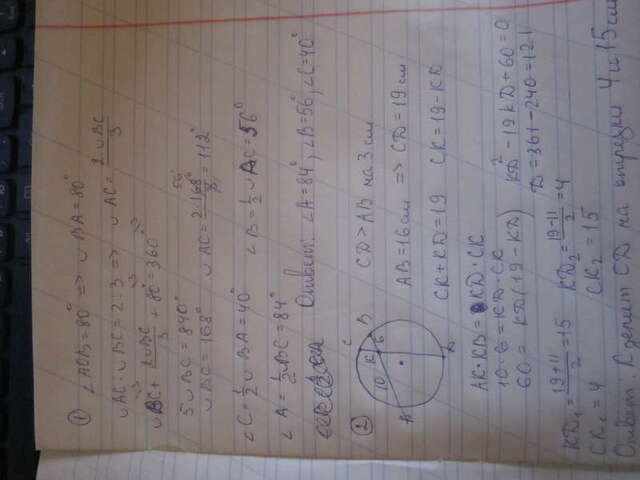 1 ∠AOB = 80° => ∪BA = 80°
∪AC : ∪BC = 2 : 3 => ∪AC = 2∪BC/3
∪BC + 2∪BC/3 + 80° = 360°
5∪BC = 840°
∪BC = 168° ∪AC = 2·168°/3 = 112°
∠C = 1/2 ∪BA = 40° ∠B = 1/2 ∪AC = 56°
∠A = 1/2 ∪BC = 84°
Ответ: ∠A = 84°, ∠B = 56°, ∠C = 40°
2 C K B 10 6 A D
CD > AB на 3 см
AB = 16 см => CD = 19 см
CK + KD = 19 CK = 19 - KD
AK · KB = KD · CK
10 · 6 = KD · CK
60 = KD(19 - KD) KD² - 19KD + 60 = 0
D = 361 - 240 = 121
KD₁ = 19+11/2 = 15 KD₂ = 19-11/2 = 4
CK₁ = 4 CK₂ = 15
Ответ: K делит CD на отрезки 4 и 15 см